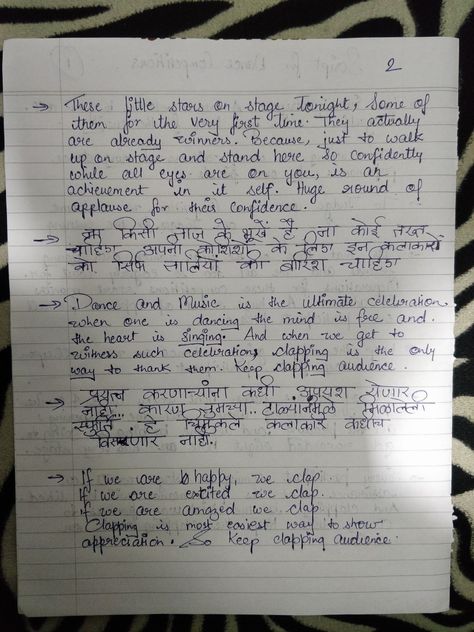 2
→ These little stars on stage tonight, Some of
them for the very first time. They actually
are already winners. Because, just to walk
up on stage and stand here so confidently
while all eyes are on you, is an
achievement in it self. Huge round of
applause for their confidence.
→ ना किसी ताज के भूखे है ना कोई तख्त
चाहिए अपनी कोशिशों के लिए इन कलाकारों
को सिर्फ तालियों की बारिश चाहिए
→ Dance and Music is the ultimate celebration
when one is dancing the mind is free and
the heart is singing. And when we get to
witness such celebrations, clapping is the only
way to thank them. Keep clapping audience.
→ प्रयत्न करणाऱ्यांना कधी अपयश येणार
नाही... कारण तुमच्या टाळ्यांनमुळे मिळालेली
स्फुर्ति हे चिमुकले कलाकार कधीच
विसरणार नाही.
→ If we are happy, we clap.
If we are excited we clap.
If we are amazed we clap
Clapping is most easiest way to show
appreciation. So keep clapping audience.